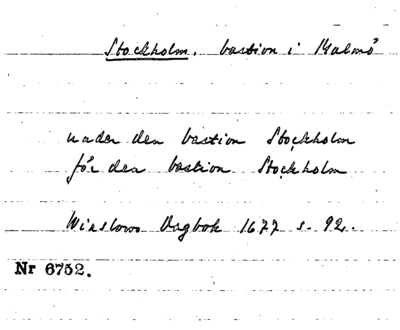 Stockholm, bastion i Malmö
under den bastion Stockholm
för den bastion Stockholm
Winslows Dagbok 1677 s. 92.
Nr 6752.